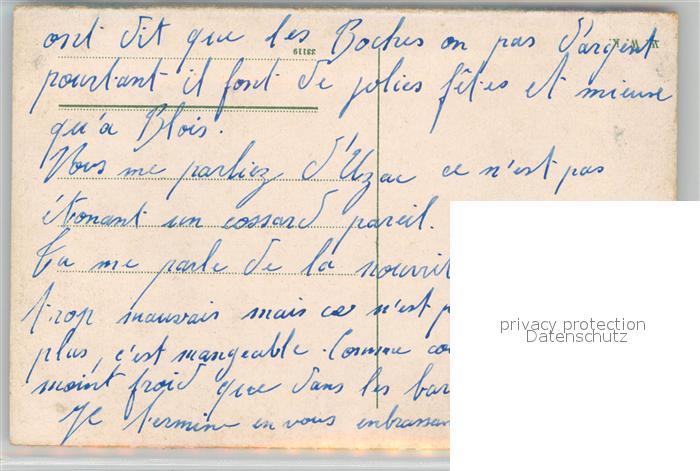 ont dit que les Boches on pas d'argent
33119
pourtant il font de jolies fêtes et mieuse
qu'a Blois.
Vous me parliez d'Uzac ce n'est pas
étonant un cossard pareil.
Tu me parle de la nourrit
trop mauvais mais ca n'est p
plus, c'est mangeable. Comme co
moint froid que dans les bar
Je termine en vous enbrassan
privacy protection
Datenschutz